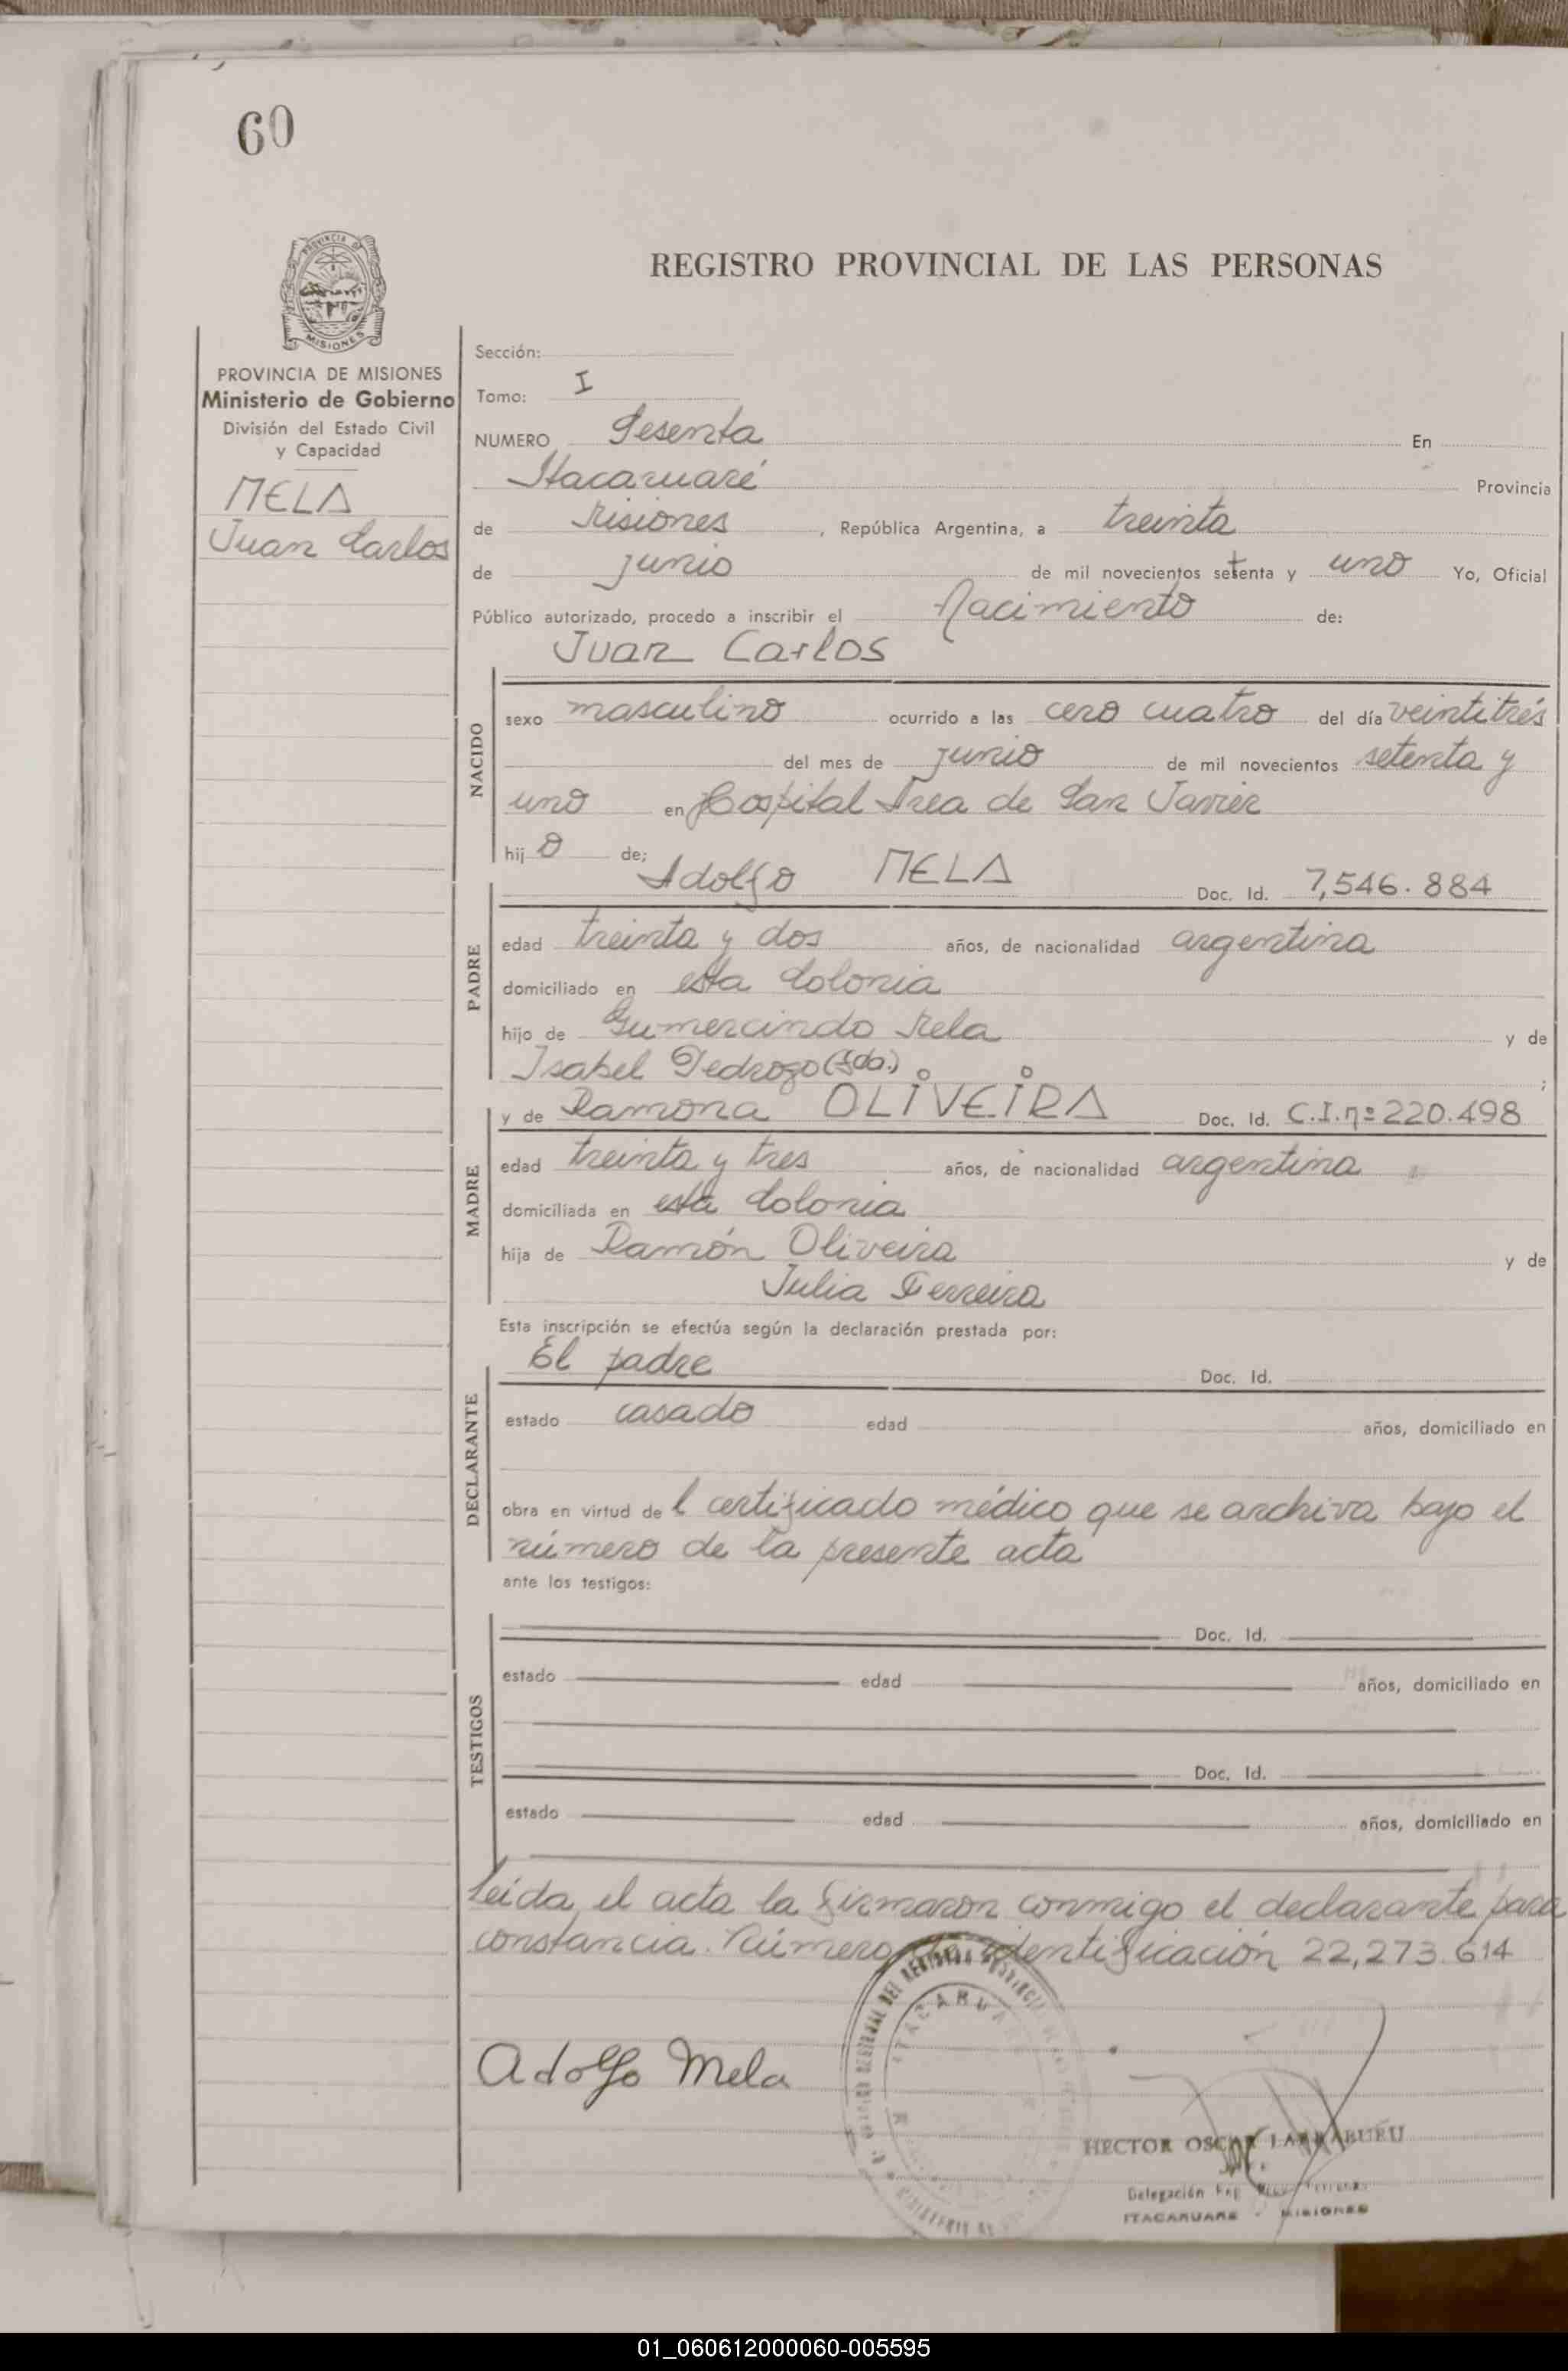 60
PROVINCIA DE
MISIONES
REGISTRO PROVINCIAL DE LAS PERSONAS
PROVINCIA DE MISIONES
Ministerio de Gobierno
División del Estado Civil
y Capacidad
MELA
Juan Carlos
Sección:
Tomo: I
NUMERO Sesenta En
Itacaruaré Provincia
de Misiones, República Argentina, a treinta
de junio de mil novecientos setenta y uno Yo, Oficial
Público autorizado, procedo a inscribir el Nacimiento de:
Juan Carlos
NACIDO
sexo masculino ocurrido a las cero cuatro del día veintitrés
del mes de junio de mil novecientos setenta y
uno en Hospital Area de San Javier
hij o de;
Adolfo MELA Doc. Id. 7,546.884
PADRE
edad treinta y dos años, de nacionalidad argentina
domiciliado en esta Colonia
hijo de Gumercindo Mela y de
Isabel Pedrozo (fda.) ;
y de Ramona OLIVEIRA Doc. Id. C.I.nº 220.498
MADRE
edad treinta y tres años, de nacionalidad argentina
domiciliada en esta Colonia
hija de Ramón Oliveira y de
Julia Ferreira
Esta inscripción se efectúa según la declaración prestada por:
El padre Doc. Id.
DECLARANTE
estado casado edad años, domiciliado en
obra en virtud de l certificado médico que se archiva bajo el
número de la presente acta
ante los testigos:
TESTIGOS
Doc. Id.
estado edad años, domiciliado en
Doc. Id.
estado edad años, domiciliado en
Leída el acta la firmaron conmigo el declarante para
constancia. Número de identificación 22,273.614
Adolfo Mela
ITACARUARE
HECTOR OSCAR LARRABURU
Delegación
ITACARUARE - MISIONES
01_060612000060-005595